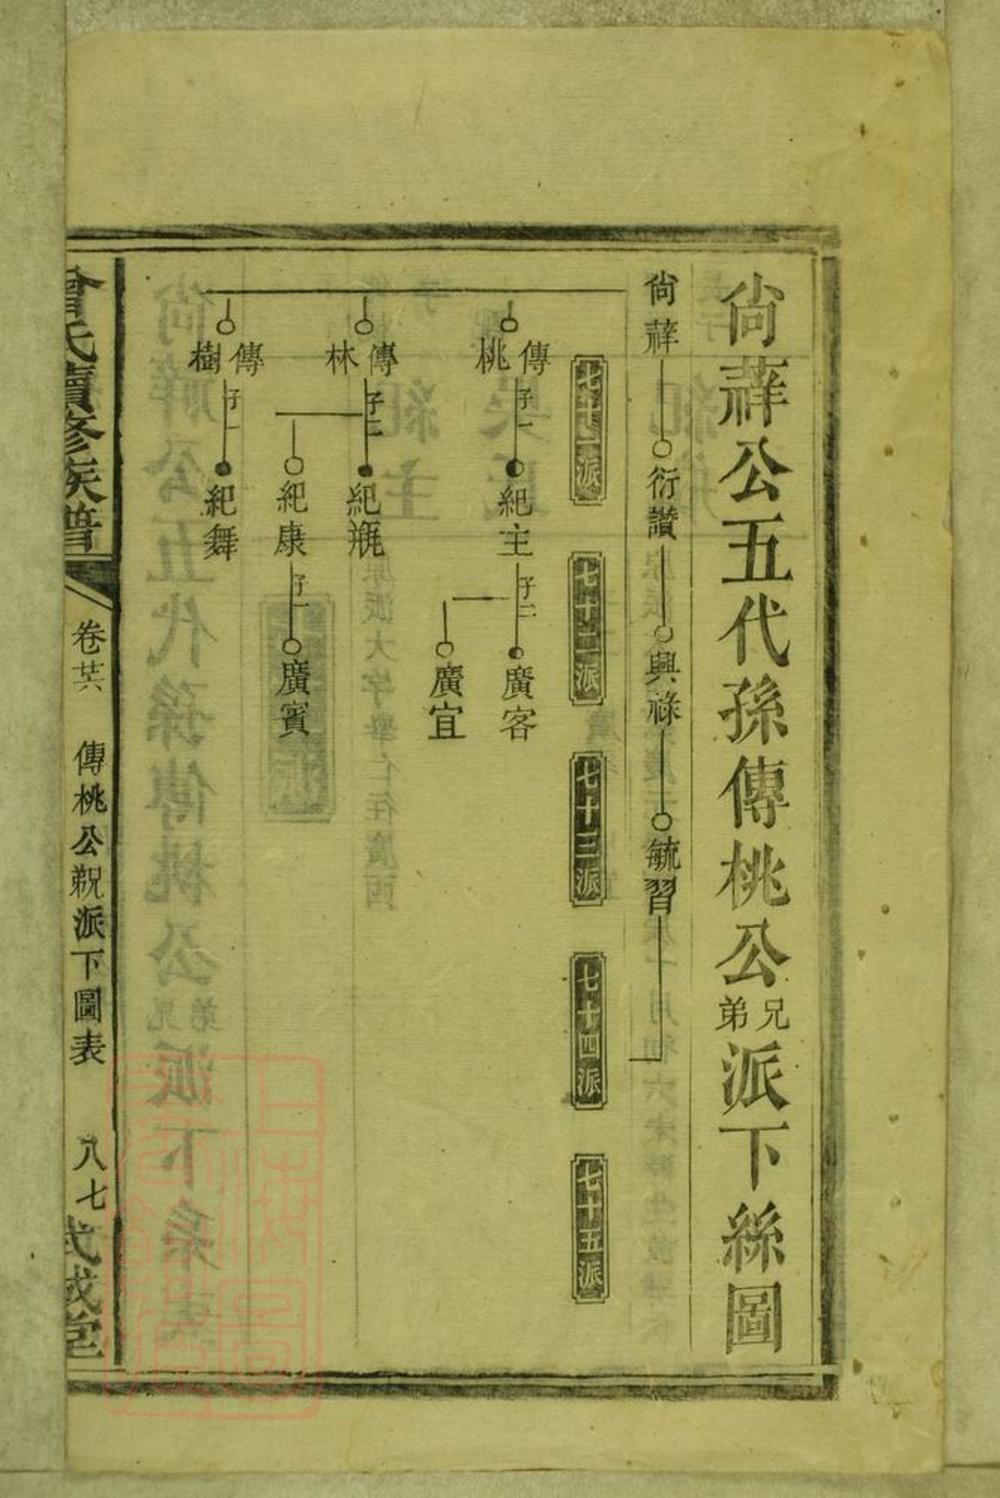 尙薢公五代孫傳桃公兄弟派下絲圖
尙薢 衍讚 興祿 毓習
七十一派 七十二派 七十三派 七十四派 七十五派
傳桃 子一 紀主 子二 廣客
廣宜
傳林 子二 紀瓶
紀康 子一 廣賓
傳樹 子一 紀舞
曾氏續修族譜 卷廿六 傳桃公派下圖表 八七 式成堂